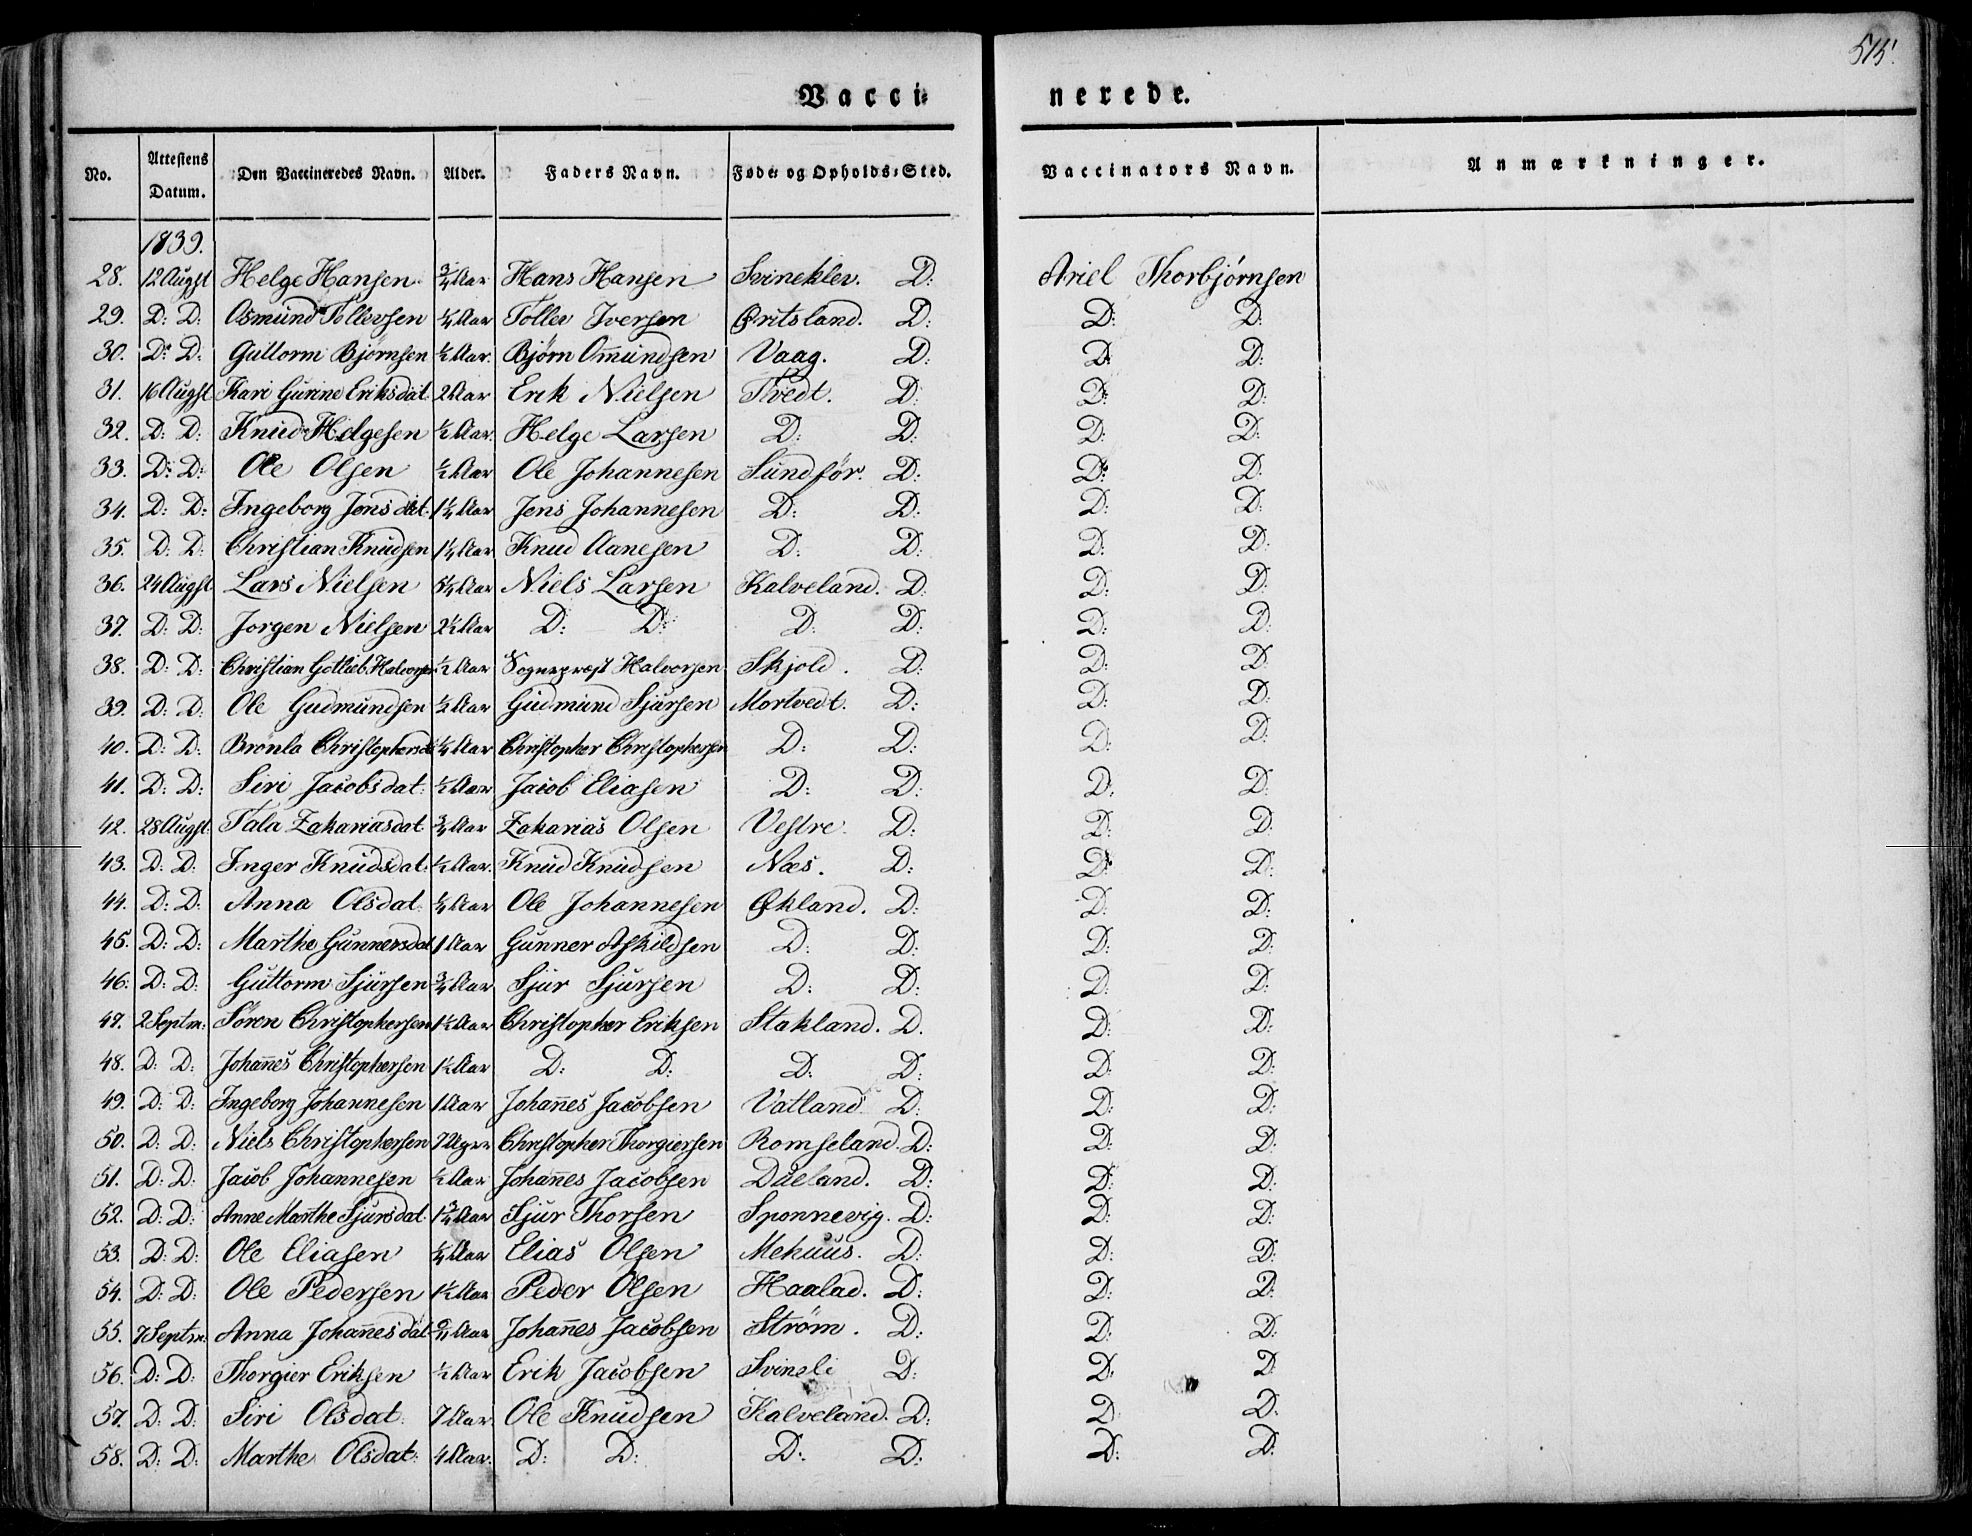 515.
Vacci= nerede.
No. Attestens Datum. Den Vaccineredes Navn. Alder. Faders Navn. Føde= og Opholds=Sted. Vaccinators Navn. Anmærkninger.
1839.
28. 12 Augst Helge Hansen. 3/4 Aar Hans Hansen Svineklev. D: Ariel Thorbjørnsen
29. D: D: Osmund Tollevsen 1/4 Aar Tollev Iversen Øritsland. D: D: D:
30. D: D: Guttorm Bjørnsen 1/2 Aar. Bjørn Omundsen Vaag. D: D: D:
31. 16 Augst Kari Gurine Eriksdat. 2 Aar Erik Nielsen Tvedt. D: D: D:
32. D: D: Knud Helgesen 1/2 Aar. Helge Larsen D: D: D: D:
33. D: D: Ole Olsen 1/2 Aar Ole Johannesen Sundfør. D: D: D:
34. D: D: Ingeborg Jens dat. 1 1/4 Aar Jens Johannesen D: D: D: D:
35. D: D: Christian Knudsen 1 1/4 Aar Knud Aanesen D: D: D: D:
36. 24 Augst. Lars Nielsen 5 1/4 Aar Niels Larsen Kalveland. D: D: D:
37. D: D: Jorgen Nielsen 2 1/2 Aar D: D: D: D: D: D:
38. D: D: Christian Gotlieb Halvorsen 1/2 Aar Sognepræst Halvorsen Skjold. D: D: D:
39. D: D: Ole Gudmundsen 1/2 Aar Gudmund Sjursen Mortvedt. D: D: D:
40. D: D: Brønla Christophersd. 1/4 Aar Christopher Christophersen D: D: D: D:
41. D: D: Siri Jacobs dat. 1/2 Aar Jacob Eliasen D: D: D: D:
42. 28 Augst. Tala Zakariasdat 3/4 Aar Zakarias Olsen Vestre. D: D: D:
43. D: D: Inger Knudsdat. 1/2 Aar. Knud Knudsen Næs. D: D: D:
44. D: D: Anna Olsdat. 1/4 Aar Ole Johannesen Økland. D: D: D:
45. D: D: Marthe Gunnersdat 1 Aar Gunner Askildsen D: D: D: D:
46. D: D: Guttorm Sjursen 3/4 Aar Sjur Sjursen D: D: D: D:
47. 2 Septm: Søren Christophersen 1 1/2 Aar Christopher Eriksen Stakland. D. D: D:
48. D: D: Johannes Christophersen 1 1/2 Aar D: D: D: D: D: D:
49. D: D: Ingeborg Johannesen 1 Aar Johannes Jacobsen Vatland D: D: D:
50. D: D: Niels Christophersen 7 Uger Christopher Thorgiersen Romseland. D: D: D:
51. D: D: Jacob Johannesen 1/2 Aar Johannes Jacobsen Dueland. D: D: D:
52. D: D: Anne Marthe Sjursdat. 1 3/4 Aar Sjur Thorsen Sponnevig. D: D: D:
53. D: D: Ole Eliasen 1/4 Aar Elias Olsen Mehuus. D: D: D:
54. D: D: Ole Pedersen 1 1/2 Aar Peder Olsen Haalad. D: D: D:
55. 7 Septm. Anna Johannes dat. Aar Johannes Jacobsen Strøm. D: D: D:
56. D: D: Thorgier Eriksen 1/2 Aar Erik Jacobsen Svinali D: D: D:
57. D: D: Siri Olsdat. 7 Aar Ole Knudsen Kalveland. D: D: D:
58. D: D: Marthe Olsdat. 4 Aar. D: D: D: D: D: D: